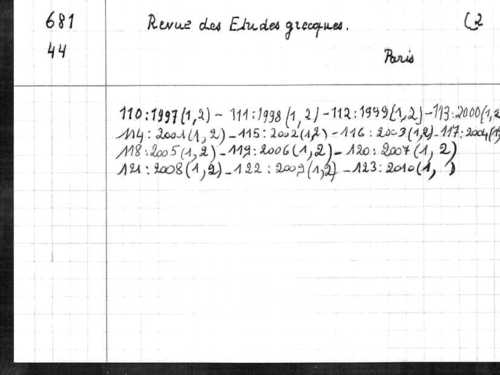 681 Revue des Etudes grecques. (2
44 Paris
110:1997(1,2) - 111:1998(1,2) - 112:1999(1,2) - 113:2000(1,2
114:2001(1,2) - 115:2002(1,2) - 116:2003(1,2) - 117:2004(1,
118:2005(1,2) - 119:2006(1,2) - 120:2007(1,2)
121:2008(1,2) - 122:2009(1,2) - 123:2010(1, )